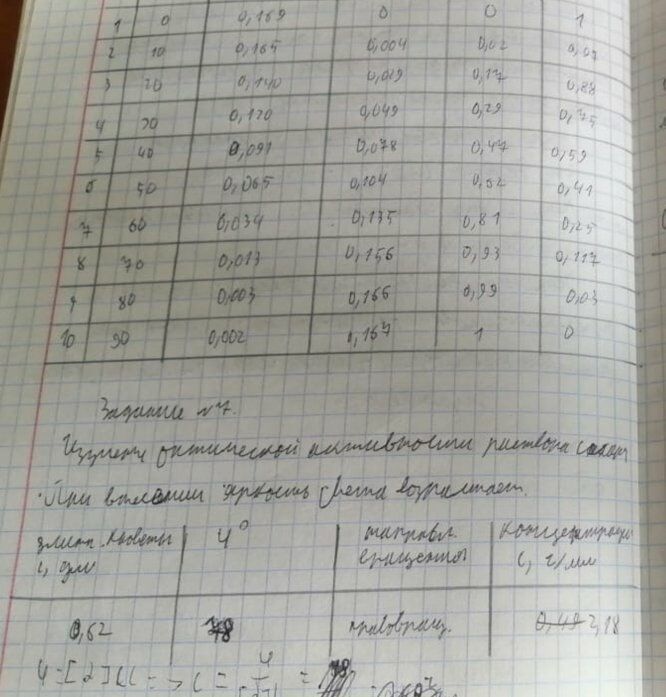 1 0 0,169 0 0 1
2 10 0,165 0,004 0,02
3 20 0,140 0,019 0,17 0,88
4 30 0,120 0,049 0,29 0,75
5 40 0,091 0,078 0,47 0,59
6 50 0,065 0,104 0,62 0,41
7 60 0,034 0,135 0,81 0,25
8 70 0,013 0,156 0,93 0,117
9 80 0,003 0,166 0,99 0,03
10 90 0,002 0,167 1 0
Задание №7.
оптической активности раствора
При яркость света возрастает.
длина кюветы φ° направл. концентрация
l, дм вращения C, г/мл
0,62 78 правовращ. 0,49 2,18